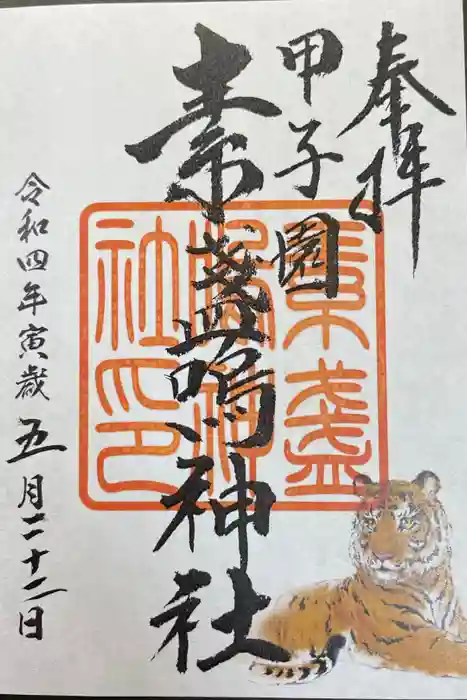 奉拝
甲子園
素盞嗚神社
令和四年寅歳五月二十二日
素盞
嗚神
社印